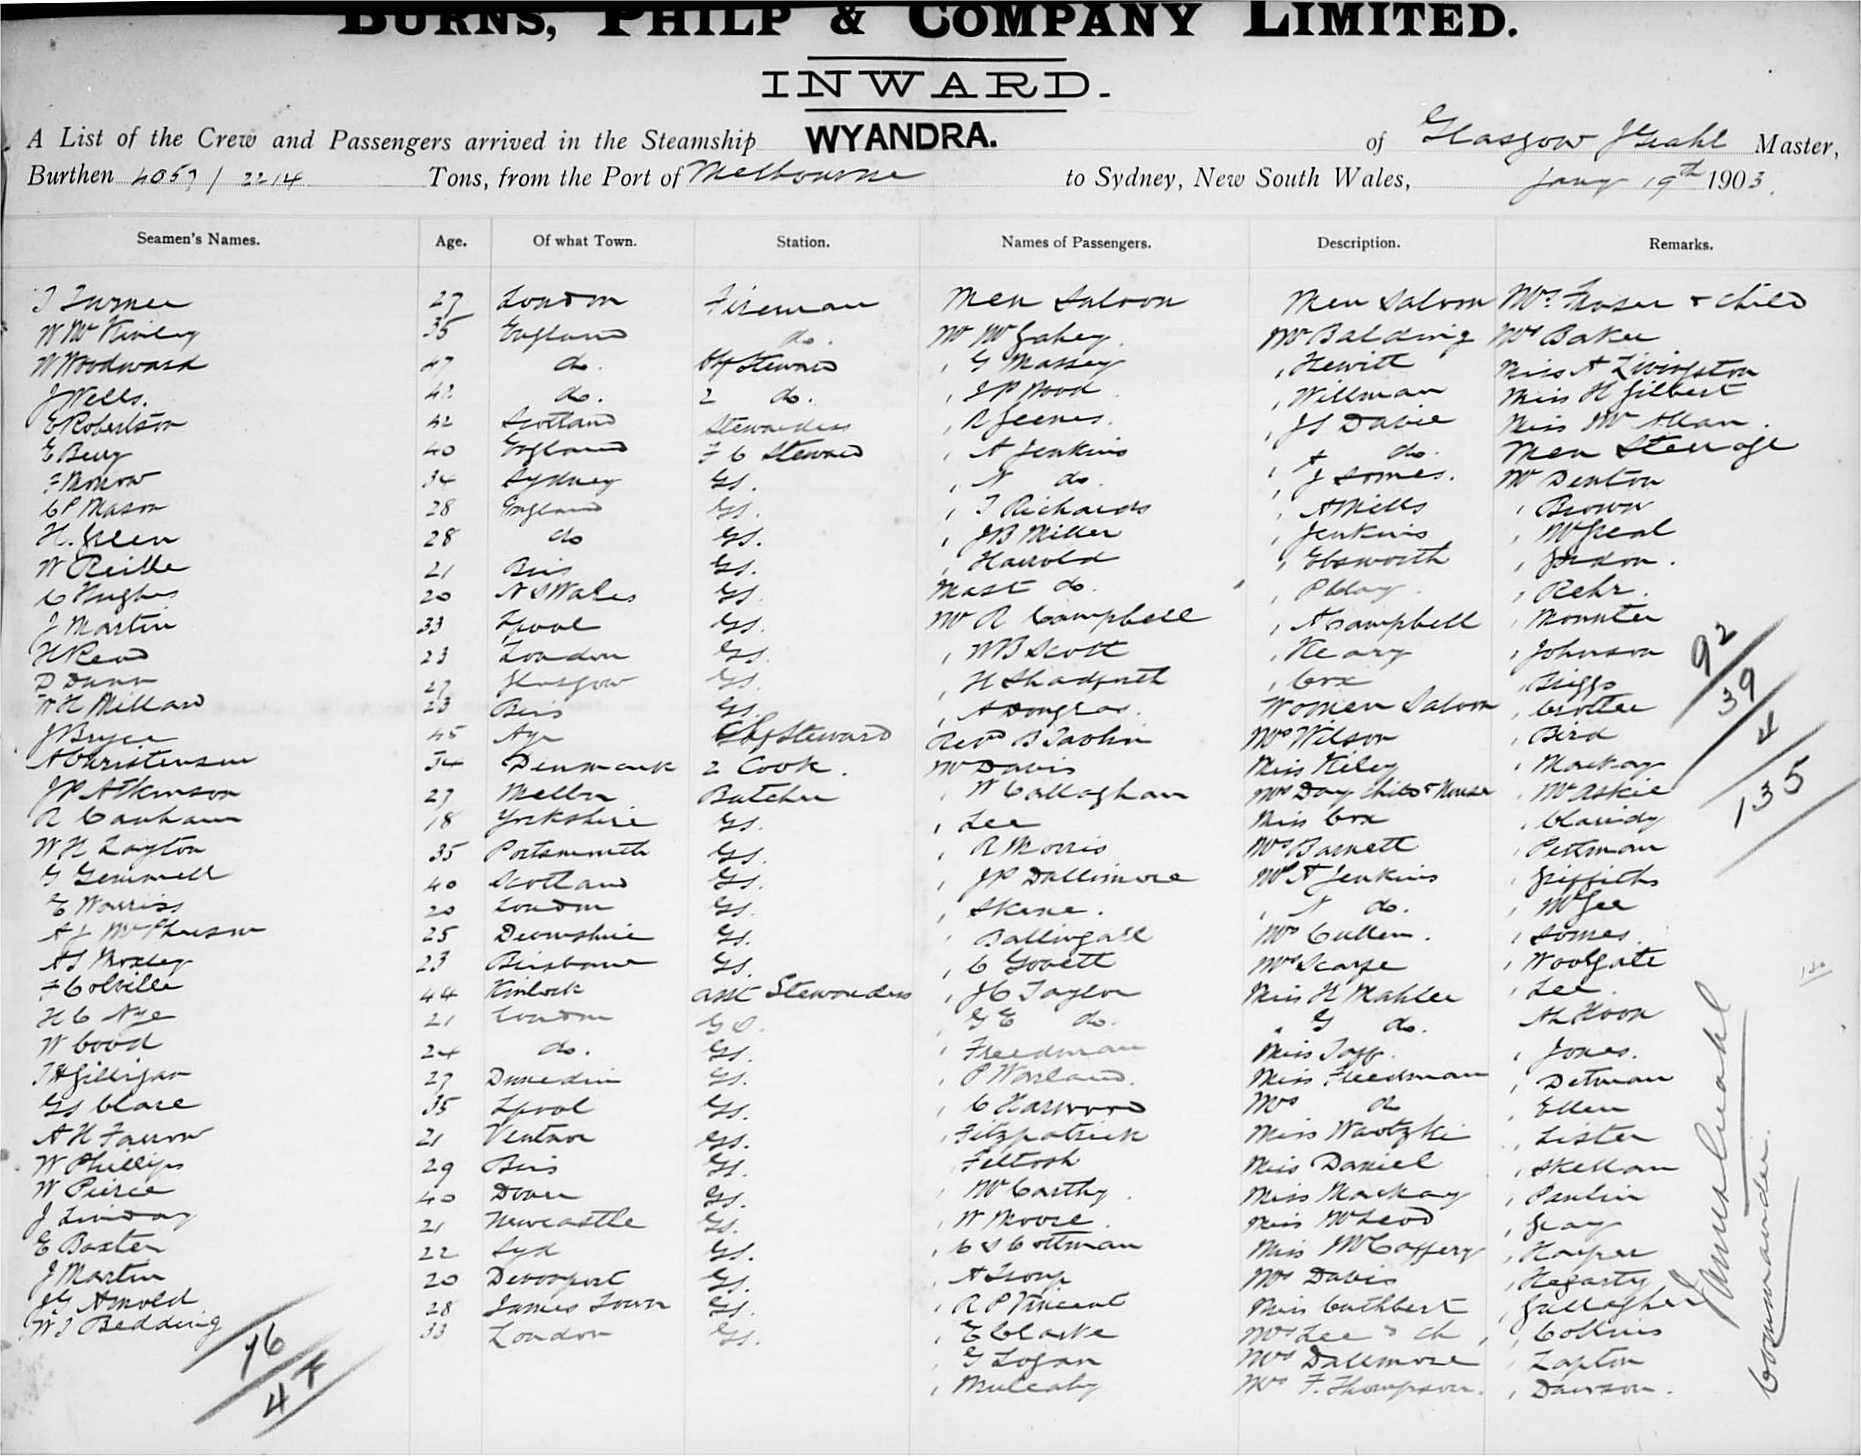 BURNS, PHILP & COMPANY LIMITED.
INWARD.
A List of the Crew and Passengers arrived in the Steamship WYANDRA. of Glasgow Master,
Burthen 4057 / 2214 Tons, from the Port of Melbourne to Sydney, New South Wales, Jany 19th 1903.
Seamen's Names. Age. Of what Town. Station. Names of Passengers. Description. Remarks.
T Turner 27 London Fireman Men Saloon Men Saloon Mrs Fraser & child
W McKinley 35 England do. Mr McGahey Mr Balding Mrs Baker
W Woodward 47 do. Steward , G Massey , Hewitt Miss A Livingston
J Wells. 42 do. 2 do. , J P Wood , Willman Miss H Gilbert
E Robertson 42 Scotland Stewardess , R Jeenes. , JS Davie Miss McAllan.
E Bury 40 England F C Steward , A Jenkins , A do. Men Steerage
F Morrow 34 Sydney GS. , N do. , J Somes. Mr Denton
C P Mason 28 England GS. , T Richards , A Mills , Brown
H. Green 28 do GS. , J B Miller , Jenkins , McGeal
W Reille 21 Bris GS. , Harrold , Ebsworth , Jordon.
C Hughes 20 N S Wales GS. Mast do. , P Clay , Rehr.
J Martin 33 Lpool GS. Mr R Campbell , A Campbell , Mounter
H Read 23 London GS. , W B Scott , Keary , Johnson
D Dunn 27 Glasgow GS. , H Shadforth , Cox , Briggs
W H Millard 23 Bris GS. , A Douglas. Women Saloon , Crotter
J Bryce 45 Ayr Steward Revd B Mrs Wilson , Bird
A Christensen 34 Denmark 2 Cook. Mr Davis Miss Kiley , Mackay
J P Atkinson 27 Melbn Butcher , W Callaghan Mrs Day child & Nurse , McAskie
R Canham 18 Yorkshire GS. , Lee Miss Cox , Claridy
W H Layton 35 Portsmouth GS. , R Morris Mrs Barnett , Pettman
G Gemmell 40 Scotland GS. , J P Dallimore Mrs A Jenkins , Griffiths
E Worriss 20 London GS. , Skene. , N do. , McGee
A J McPherson 25 Devonshire GS. , Ballingall Mrs Cullen. , Somes
A S Moxley 23 Brisbane GS. , C Govett Mrs Scarfe , Woolgate
F Colville 44 Kinlock asst Stewardess , J C Taylor Miss H Mahler , Lee.
H C Nye 21 London GS. , G E do. , G do. Ah Hoon
W Good 24 do. GS. , Freedman Miss Topp. , Jones.
T H Gilligan 27 Dunedin GS. , P Warland. Miss Freedman , Detman
GS Clare 35 Lpool GS. , C Harwood Mrs do , Ellen
A H Farrow 21 Ventnor GS. , Fitzpatrick Miss Wartzki , Lister
W Phillips 29 Bris GS. , Filtosh Miss Daniel , Skellam
W Pierce 40 Dover GS. , McCarthy. Miss Mackay , Paulin
J Linday 21 Newcastle GS. , W Moore. Miss McLeod , Gray
E Baxter 22 Syd GS. , C S Cottman Miss McCaffery , Harper
J Martin 20 Devonport GS. , A Troup Mrs Davis , Hegarty
J G Arnold 28 James Town GS. , R P Vincent Miss Cuthbert , Gallagher
W J Bedding 33 London GS. , E Clarke Mrs Lee & ch , Collins
, G Logan Mrs Dallimore , Lapton
, Mulcahy Mrs F. Thompson. , Dawson.
92
39
4
135
76
47
James
Commander.